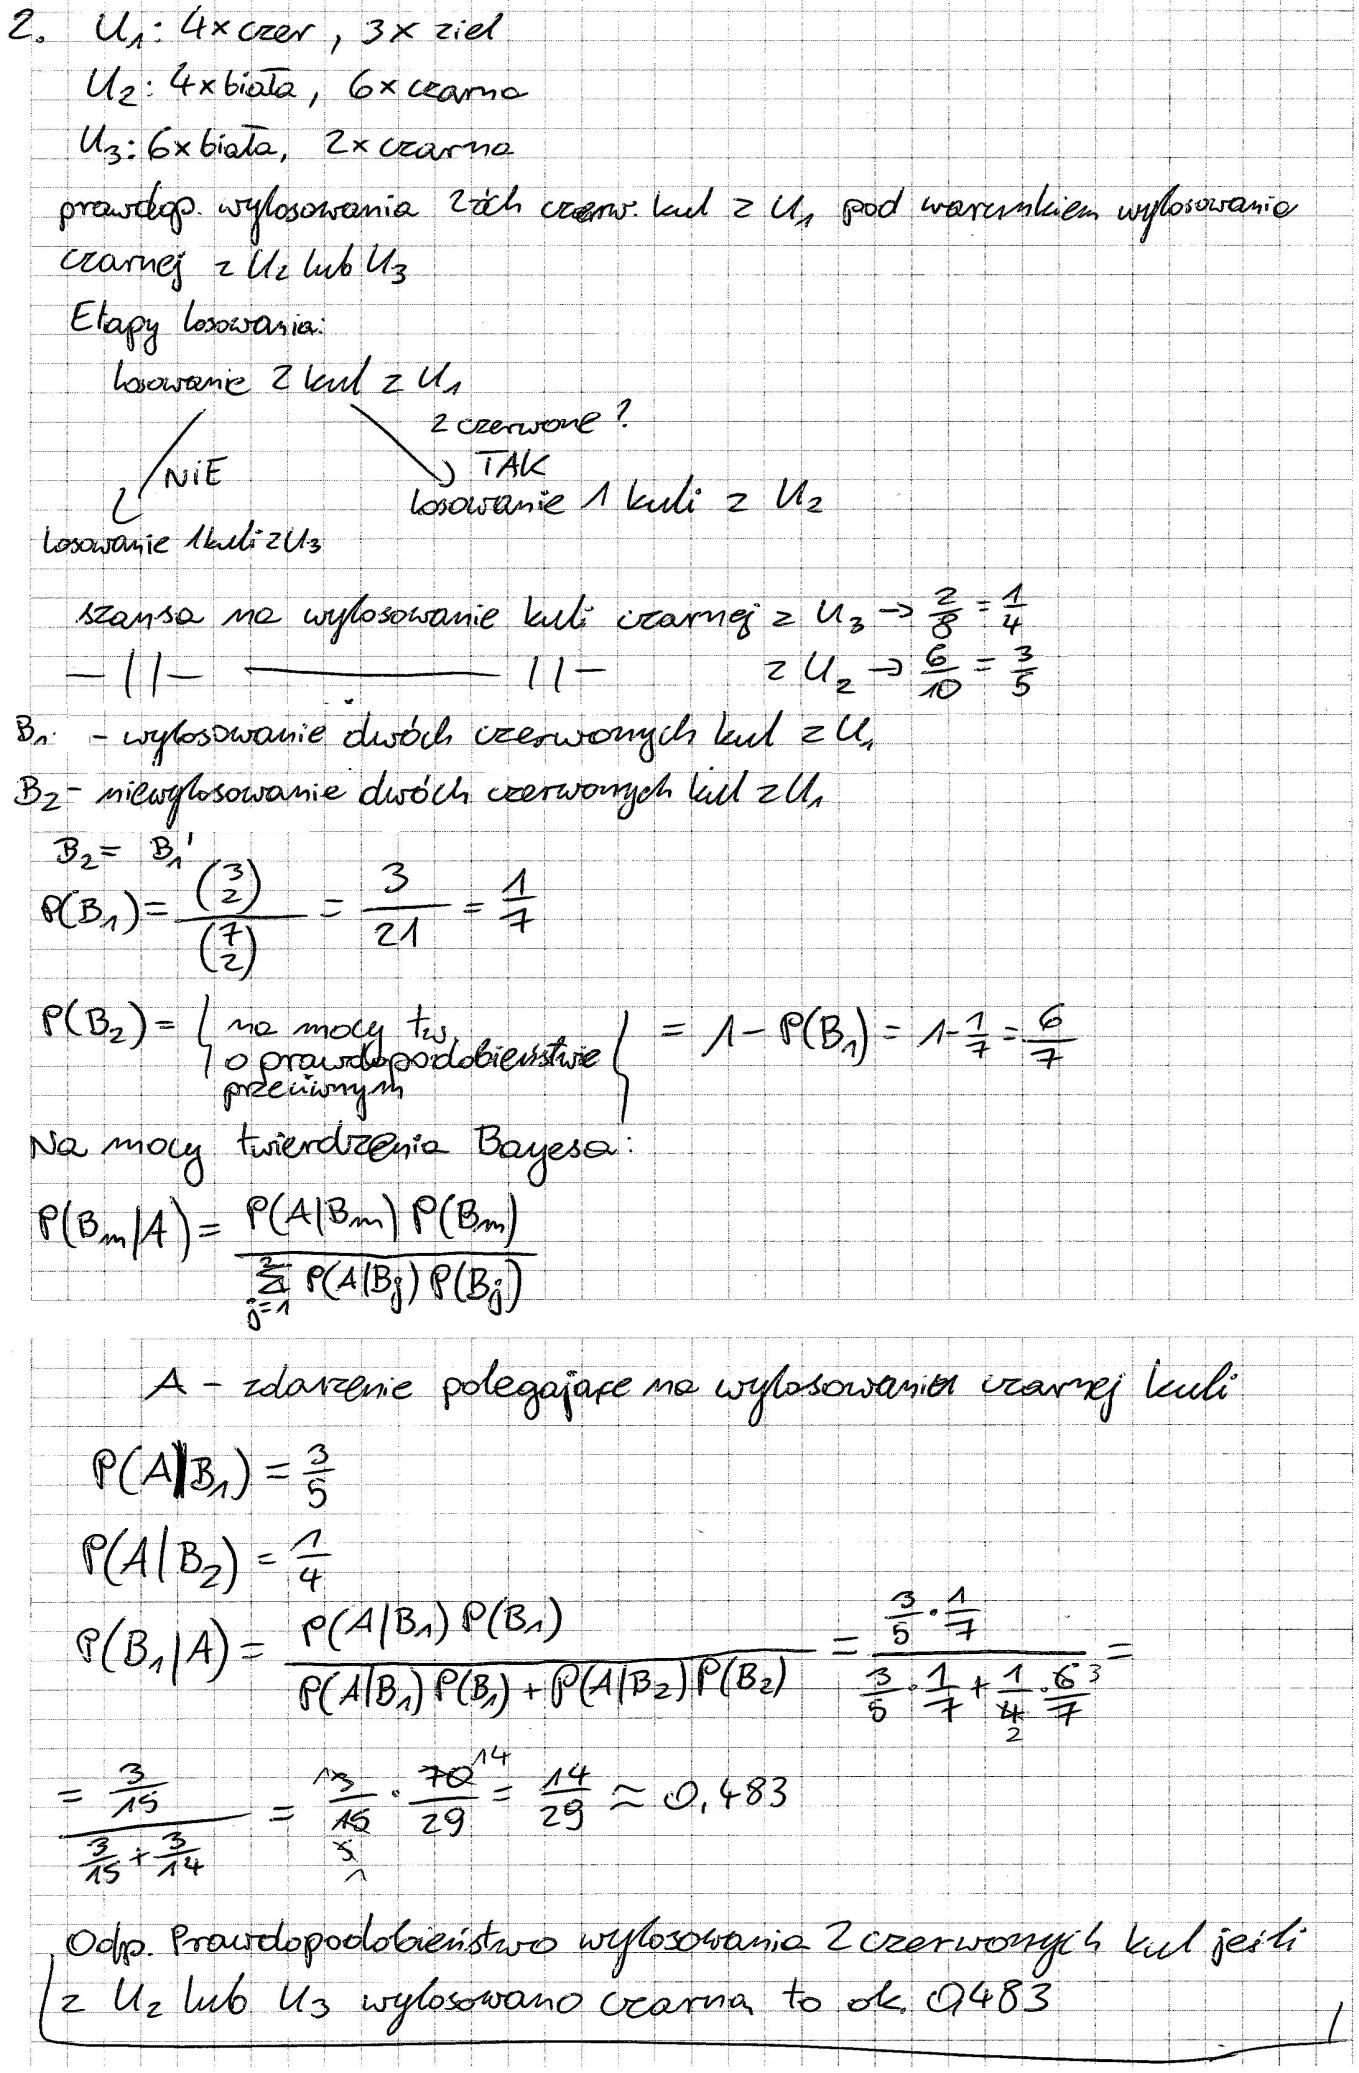 2. U₁: 4×czer, 3×ziel
U₂: 4×biała, 6×czarna
U₃: 6×biała, 2×czarna
prawdop. wylosowania 2-óch czerw. kul z U₁ pod warunkiem wylosowania
czarnej z U₂ lub U₃
Etapy losowania:
losowanie 2 kul z U₁
2 czerwone?
NIE TAK
losowanie 1 kuli z U₂
losowanie 1 kuli z U₃
szansa na wylosowanie kuli czarnej z U₃ → 2/8 = 1/4
—||— ———— ||— z U₂ → 6/10 = 3/5
B₁ - wylosowanie dwóch czerwonych kul z U₁
B₂ - niewylosowanie dwóch czerwonych kul z U₁
B₂ = B₁'
P(B₁) = (3 2)/(7 2) = 3/21 = 1/7
P(B₂) = { na mocy tw. o prawdopodobieństwie przeciwnym } = 1 - P(B₁) = 1 - 1/7 = 6/7
Na mocy twierdzenia Bayesa:
P(Bₘ|A) = P(A|Bₘ) P(Bₘ) / Σ_{j=1}^{2} P(A|Bⱼ) P(Bⱼ)
A - zdarzenie polegające na wylosowaniu czarnej kuli
P(A|B₁) = 3/5
P(A|B₂) = 1/4
P(B₁|A) = P(A|B₁) P(B₁) / (P(A|B₁) P(B₁) + P(A|B₂) P(B₂)) = (3/5 · 1/7) / (3/5 · 1/7 + 1/4 2 · 6/7 3) =
= (3/15) / (3/15 + 3/14) = 1 3/15 5 1 · 70 14/29 = 14/29 ≈ 0,483
Odp. Prawdopodobieństwo wylosowania 2 czerwonych kul jeśli
z U₂ lub U₃ wylosowano czarną to ok. 0,483